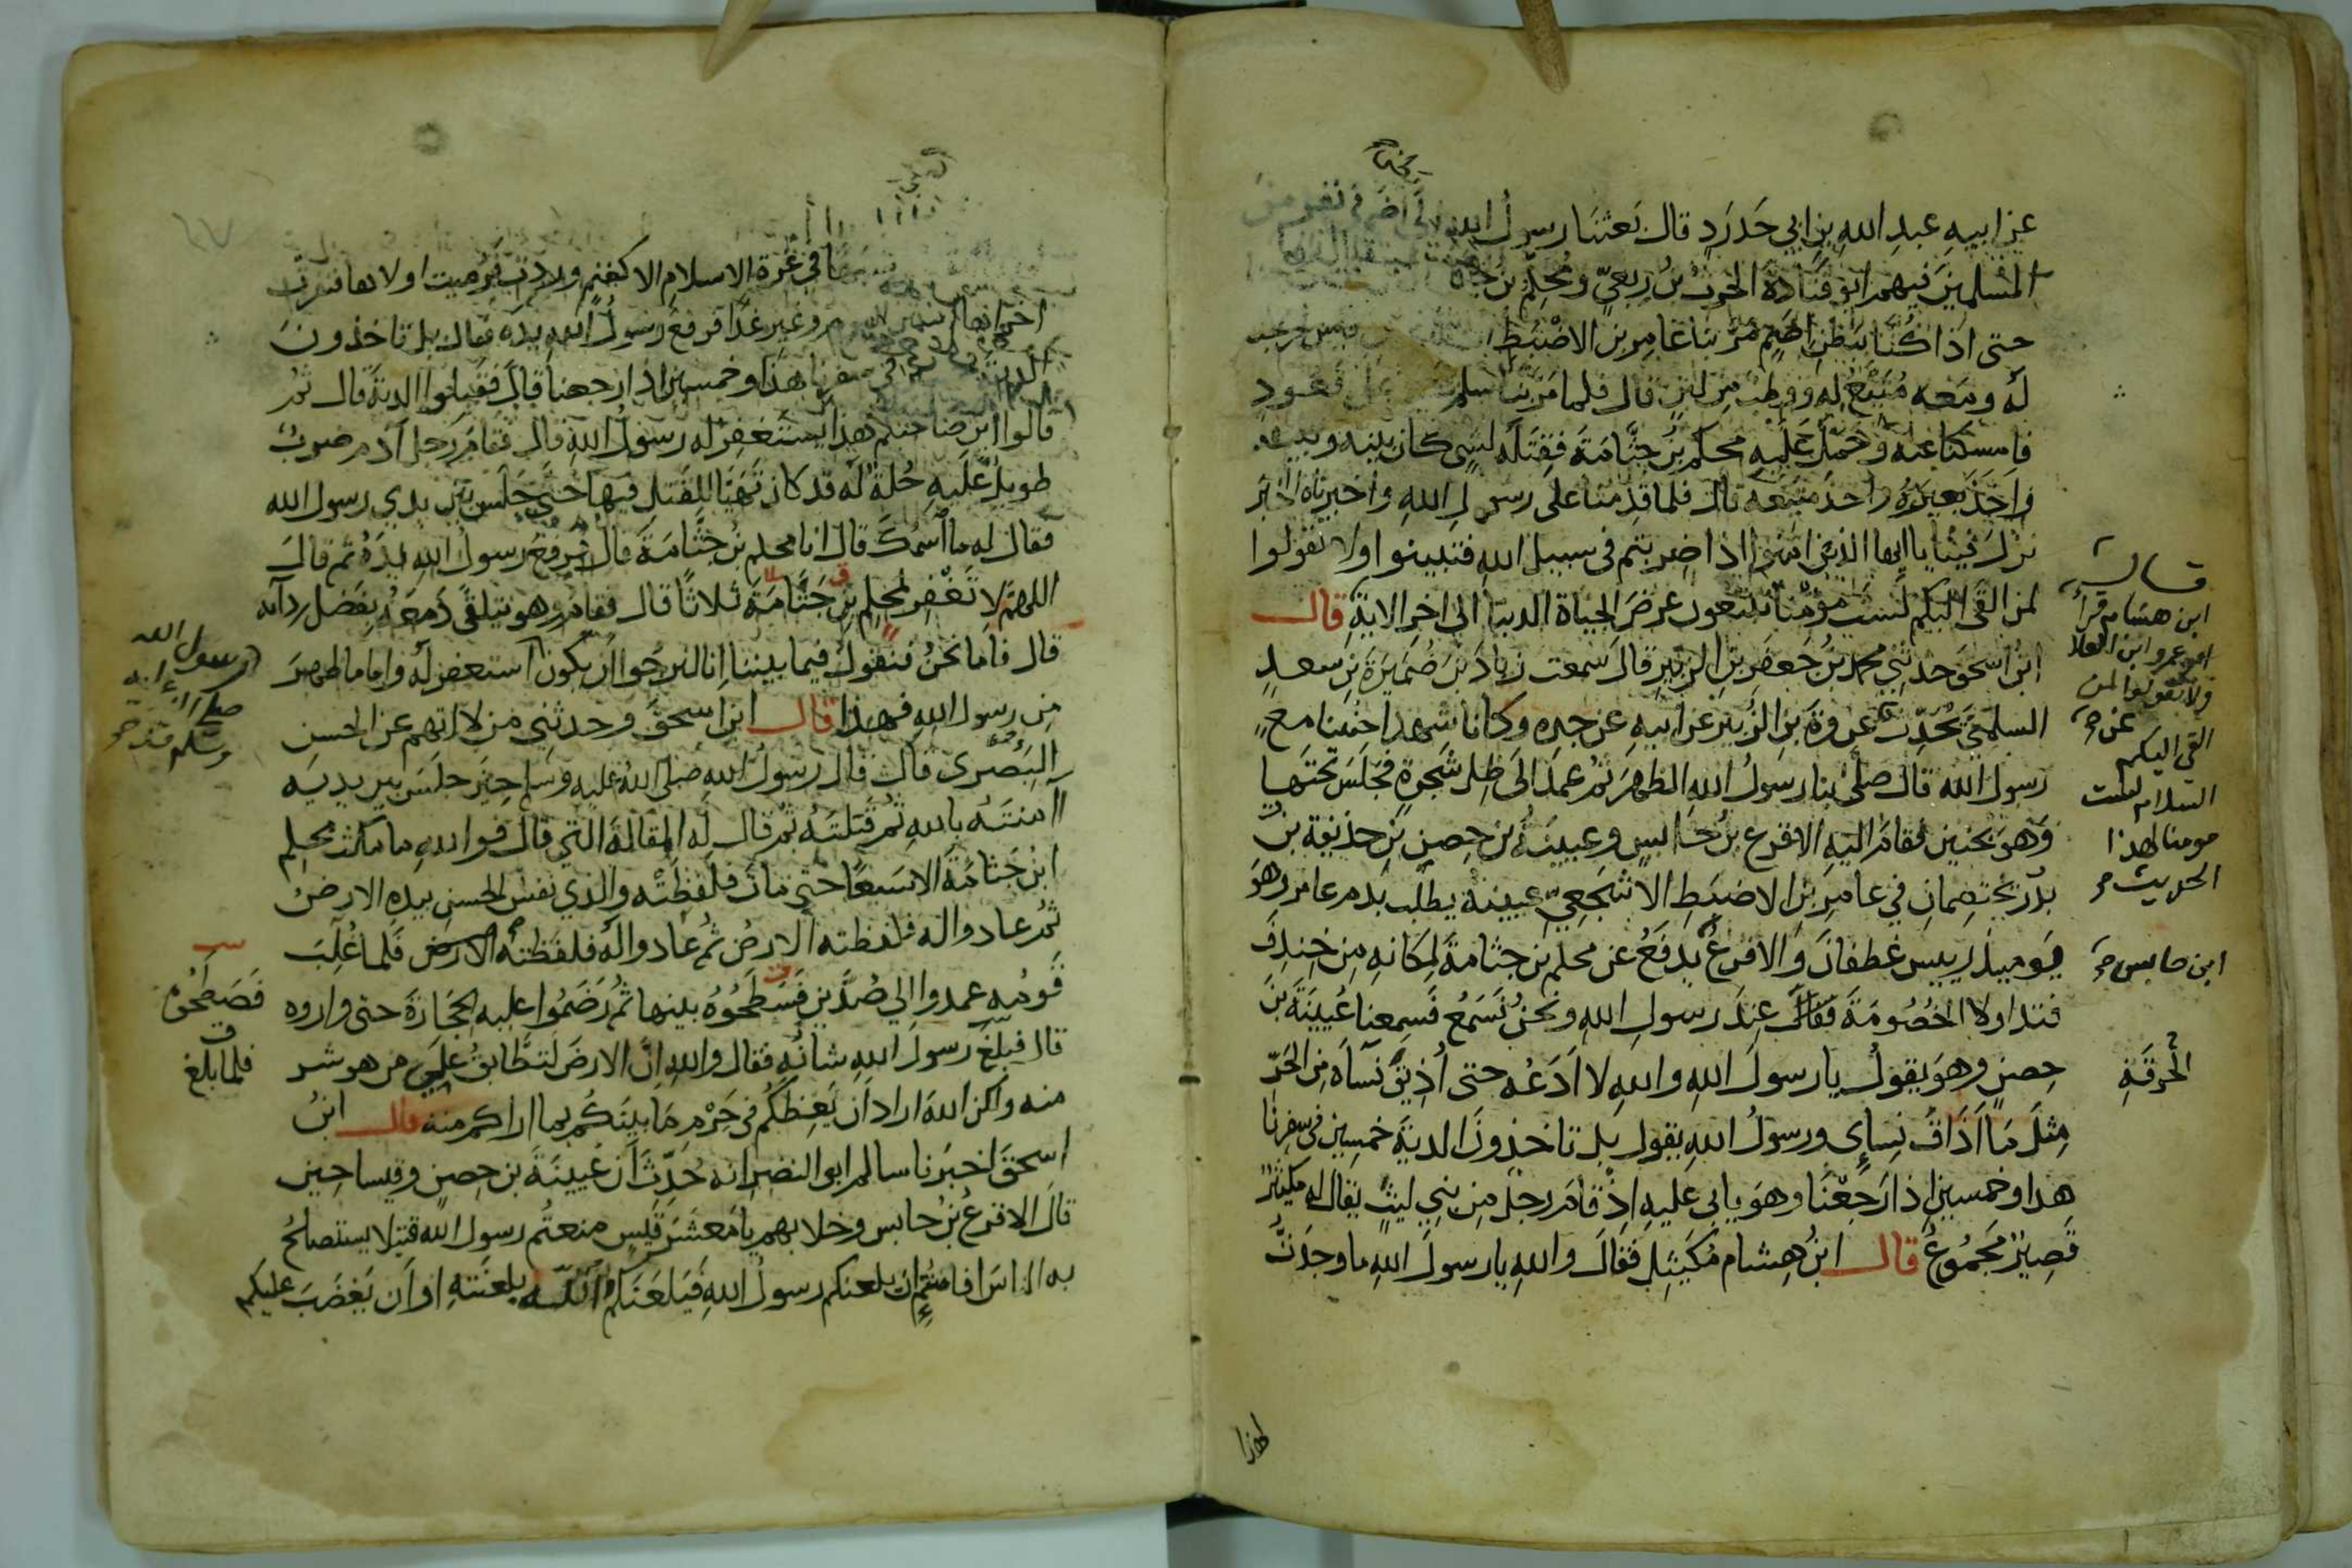 عن ابيه عبد الله بن ابي حدرد قال بعثنا رسول الله الى اضم في نفر من
المسلمين فيهم ابو قتادة الحرث بن ربعي ومحلم بن جثامة
حتى اذا كنا ببطن اضم مر بنا عامر بن الاضبط
له ومعه متيع له ووطب من لبن قال فلما مر بنا سلم على قعود
فامسكنا عنه وحمل عليه محلم بن جثامة فقتله لشي كان بينه وبينه
واخذ بعيره واخذ متيعه قال فلما قدمنا على رسول الله واخبرناه الخبر
نزل فينا يا ايها الذين امنوا اذا ضربتم في سبيل الله فتبينوا ولا تقولوا
لمن القى اليكم لست مؤمنا تبتغون عرض الحياة الدنيا الى اخر الاية قال
ابن اسحق حدثني محمد بن جعفر بن الزبير قال سمعت زياد بن ضميرة بن سعد
السلمي يحدث عن عروة بن الزبير عن ابيه عن جده وكانا شهدا حنينا مع
رسول الله قال صلى بنا رسول الله الظهر ثم عمد الى ظل شجرة فجلس تحتها
وهو بحنين فقام اليه الاقرع بن حابس وعيينة بن حصن بن حذيفة بن
بدر يختصمان في عامر بن الاضبط الاشجعي عيينة يطلب بدم عامر وهو
يوميذ رييس غطفان والاقرع يدفع عن محلم بن جثامة لمكانه من خندف
فتداولا الخصومة عند رسول الله ونحن نسمع فسمعنا عيينة بن
حصن وهو يقول يا رسول الله والله لا ادعه حتى اذيق نساه من الحر
مثل ما اذاق نساي ورسول الله يقول بل تاخذون الدية خمسين في سفرنا
هذا وخمسين اذا رجعنا وهو يابى عليه اذ قام رجل من بني ليث يقال له مكيثر
قصير مجموع قال ابن هشام مكيتل فقال والله يا رسول الله ما وجدت
لهذا
قال
ابن هشام قرأ
ابو عمرو ابن العلا
ولا تقولوا لمن
القى اليكم
السلام لست
مومنا لهذا
الحديث
ابن حابس
الحرقة
في غرة الاسلام الا كغنم وردت فرميت اولاها فنفرت
اخراها اسنن اليوم وغير غدا فرفع رسول الله يده فقال بل تاخذون
الدية في سفرنا هذا وخمسين اذا رجعنا قال فقبلوا الدية قال ثم
قالوا اين صاحبكم هذا يستغفر له رسول الله قال فقام رجل آدم ضرب
طويل عليه حلة له قد كان تهيا للقتل فيها حتى جلس بين يدي رسول الله
فقال له ما اسمك قال انا محلم بن جثامة قال فرفع رسول الله يده ثم قال
اللهم لا تغفر لمحلم بن جثامة ثلاثا قال فقام وهو يتلقى دمعه بفضل ردآيه
قال فاما نحن فنقول فيما بيننا انا لنرجوا ان يكون استغفر له واما ما ظهر
من رسول الله فهذا قال ابن اسحق وحدثني من لا اتهم عن الحسن
البصرى قال قال رسول الله صلى الله عليه وسلم حين جلس بين يديه
آمنته بالله ثم قتلته ثم قال له المقالة التي قال فوالله ما مكث محلم
ابن جثامة الا سبعا حتى مات فلفظته والذي نفس الحسن بيده الارض
ثم عادوا له فلفظته الارض ثم عادوا له فلفظته الارض فلما غلب
قومه عمدوا الى صدين فسطحوه بينهما ثم رضموا عليه الحجارة حتى واروه
قال فبلغ رسول الله شانه فقال والله ان الارض لتطابق على من هو شر
منه ولكن الله اراد ان يعظكم في حرم ما بينكم بما اراكم منه قال ابن
اسحق اخبرنا سالم ابو النضر انه حدث ان عيينة بن حصن وقيسا حين
قال الاقرع بن حابس وخلا بهم يا معشر قيس منعتم رسول الله قتيلا يستصلح
به الناس افامنتم ان يلعنكم رسول الله فيلعنكم الله بلعنته او ان يغضب عليكم
رسول الله
صلى الله عليه
وسلم
فصطحوه
فلما بلغ